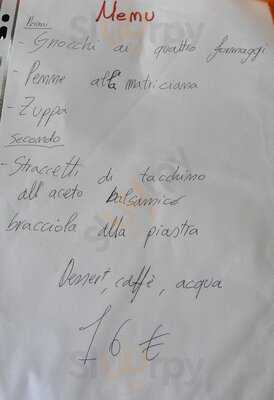 Menu
Primi
- Gnocchi ai quattro formaggi
- Penne alla matriciana
- Zuppa
Secondo
- Straccetti di tacchino
all'aceto balsamico
bracciola alla piastra
Dessert, caffè, acqua
16 €